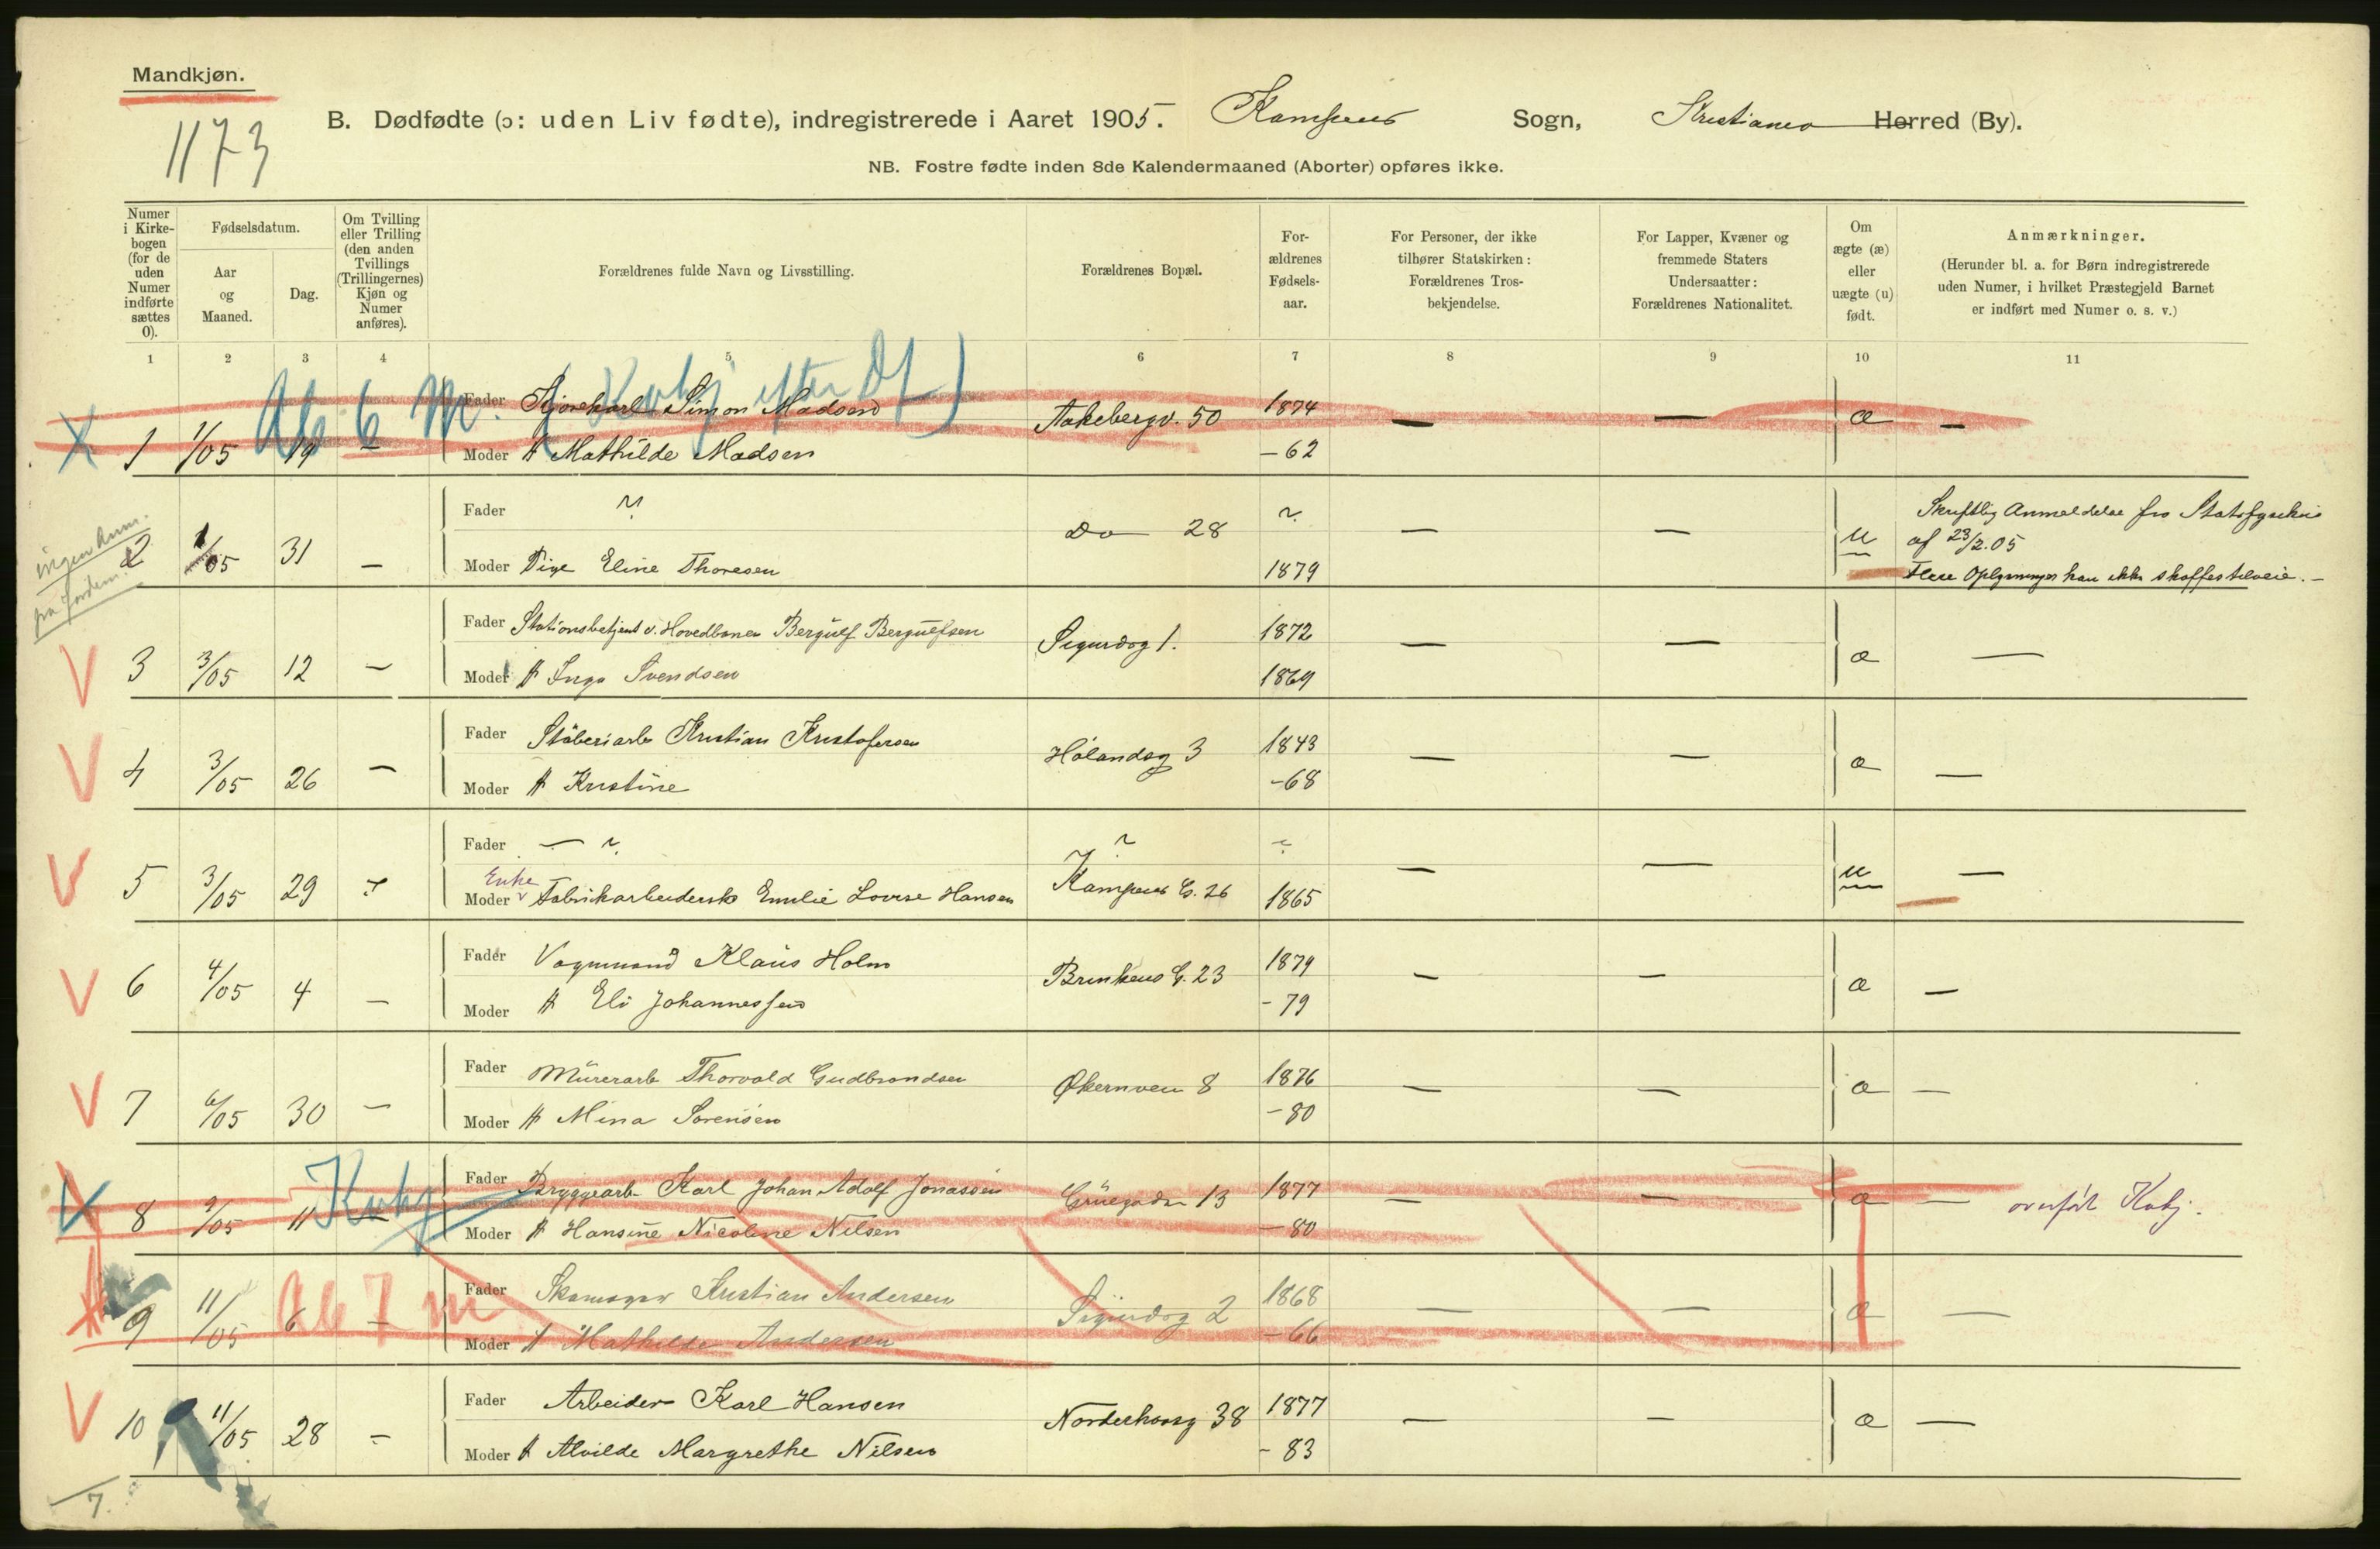 Mandkjøn.
1173
B. Dødfødte (ɔ: uden Liv fødte), indregistrerede i Aaret 1905. Kampens Sogn, Kristiania Herred (By).
NB. Fostre fødte inden 8de Kalendermaaned (Aborter) opføres ikke.
Numer i Kirke-bogen (for de uden Numer indførte sættes 0).
Fødselsdatum.
Aar og Maaned.
Dag.
Om Tvilling eller Trilling (den anden Tvillings (Trillingernes) Kjøn og Numer anføres).
Forældrenes fulde Navn og Livsstilling.
Forældrenes Bopæl.
For-ældrenes Fødsels-aar.
For Personer, der ikke tilhører Statskirken: Forældrenes Tros-bekjendelse.
For Lapper, Kvæner og fremmede Staters Undersaatter: Forældrenes Nationalitet.
Om ægte (æ) eller uægte (u) født.
Anmærkninger.
(Herunder bl. a. for Børn indregistrerede uden Numer, i hvilket Præstegjeld Barnet er indført med Numer o. s. v.)
1 2 3 4 5 6 7 8 9 10 11
Ab 6 M. (Kvkj efter Df)
Fader Kjørekarl Simon Madsen Aakebergv. 50 1874 — — æ —
X 1 1/05 19 — Moder H Mathilde Madsen — 62
Fader ? Do 28 ? — — u Skriftlig Anmeldelse fra Statsfysikus
ingen dum. 2 1/05 31 — af 23/2.05
fra Jordem. Moder Pige Eline Thoresen 1879 Flere Oplysninger kan ikke skaffes tilveie. —
Fader Stationsbetjent v. Hovedbanen Bergulf Bergulfsen Sigurdsg 1. 1872 — — æ —
V 3 3/05 12 — Moder H Inga Svendsen 1869
Fader Støberiarb Kristian Kristofersen Hølandsg 3 1843 — — æ —
V 4 3/05 26 — Moder H Kristine -68
Fader — ? ? ? — — u —
Enke
V 5 3/05 29 Moder Fabrikarbeiderske Emilie Lovise Hansen Kampens G. 26 1865
Fader Vognmand Klaus Holm Brinkens G. 23 1879 — — æ —
V 6 4/05 4 — Moder H Eli Johannessen - 79
Fader Murerarb Thorvald Gudbrandsen Økernveien 8 1876 — — æ —
V 7 6/05 30 — Moder H Mina Sørensen - 80
Kvkj
Fader Bryggearb Karl Johan Adolf Jonassen Grüegaden 13 1877 — — æ — overført Kvkj.
V 8 9/05 11 — Moder H Hansine Nicoline Nilsen - 80
Ab 7 m
Fader Skomager Kristian Andersen Sigurdsg 2 1868 — — æ —
9 11/05 6 — Moder H Mathilde Andersen - 66
Fader Arbeider Karl Hansen Norderhovsg 38 1877 — — æ —
V 10 11/05 28 — Moder H Alvilde Margrethe Nilsen - 83
7.